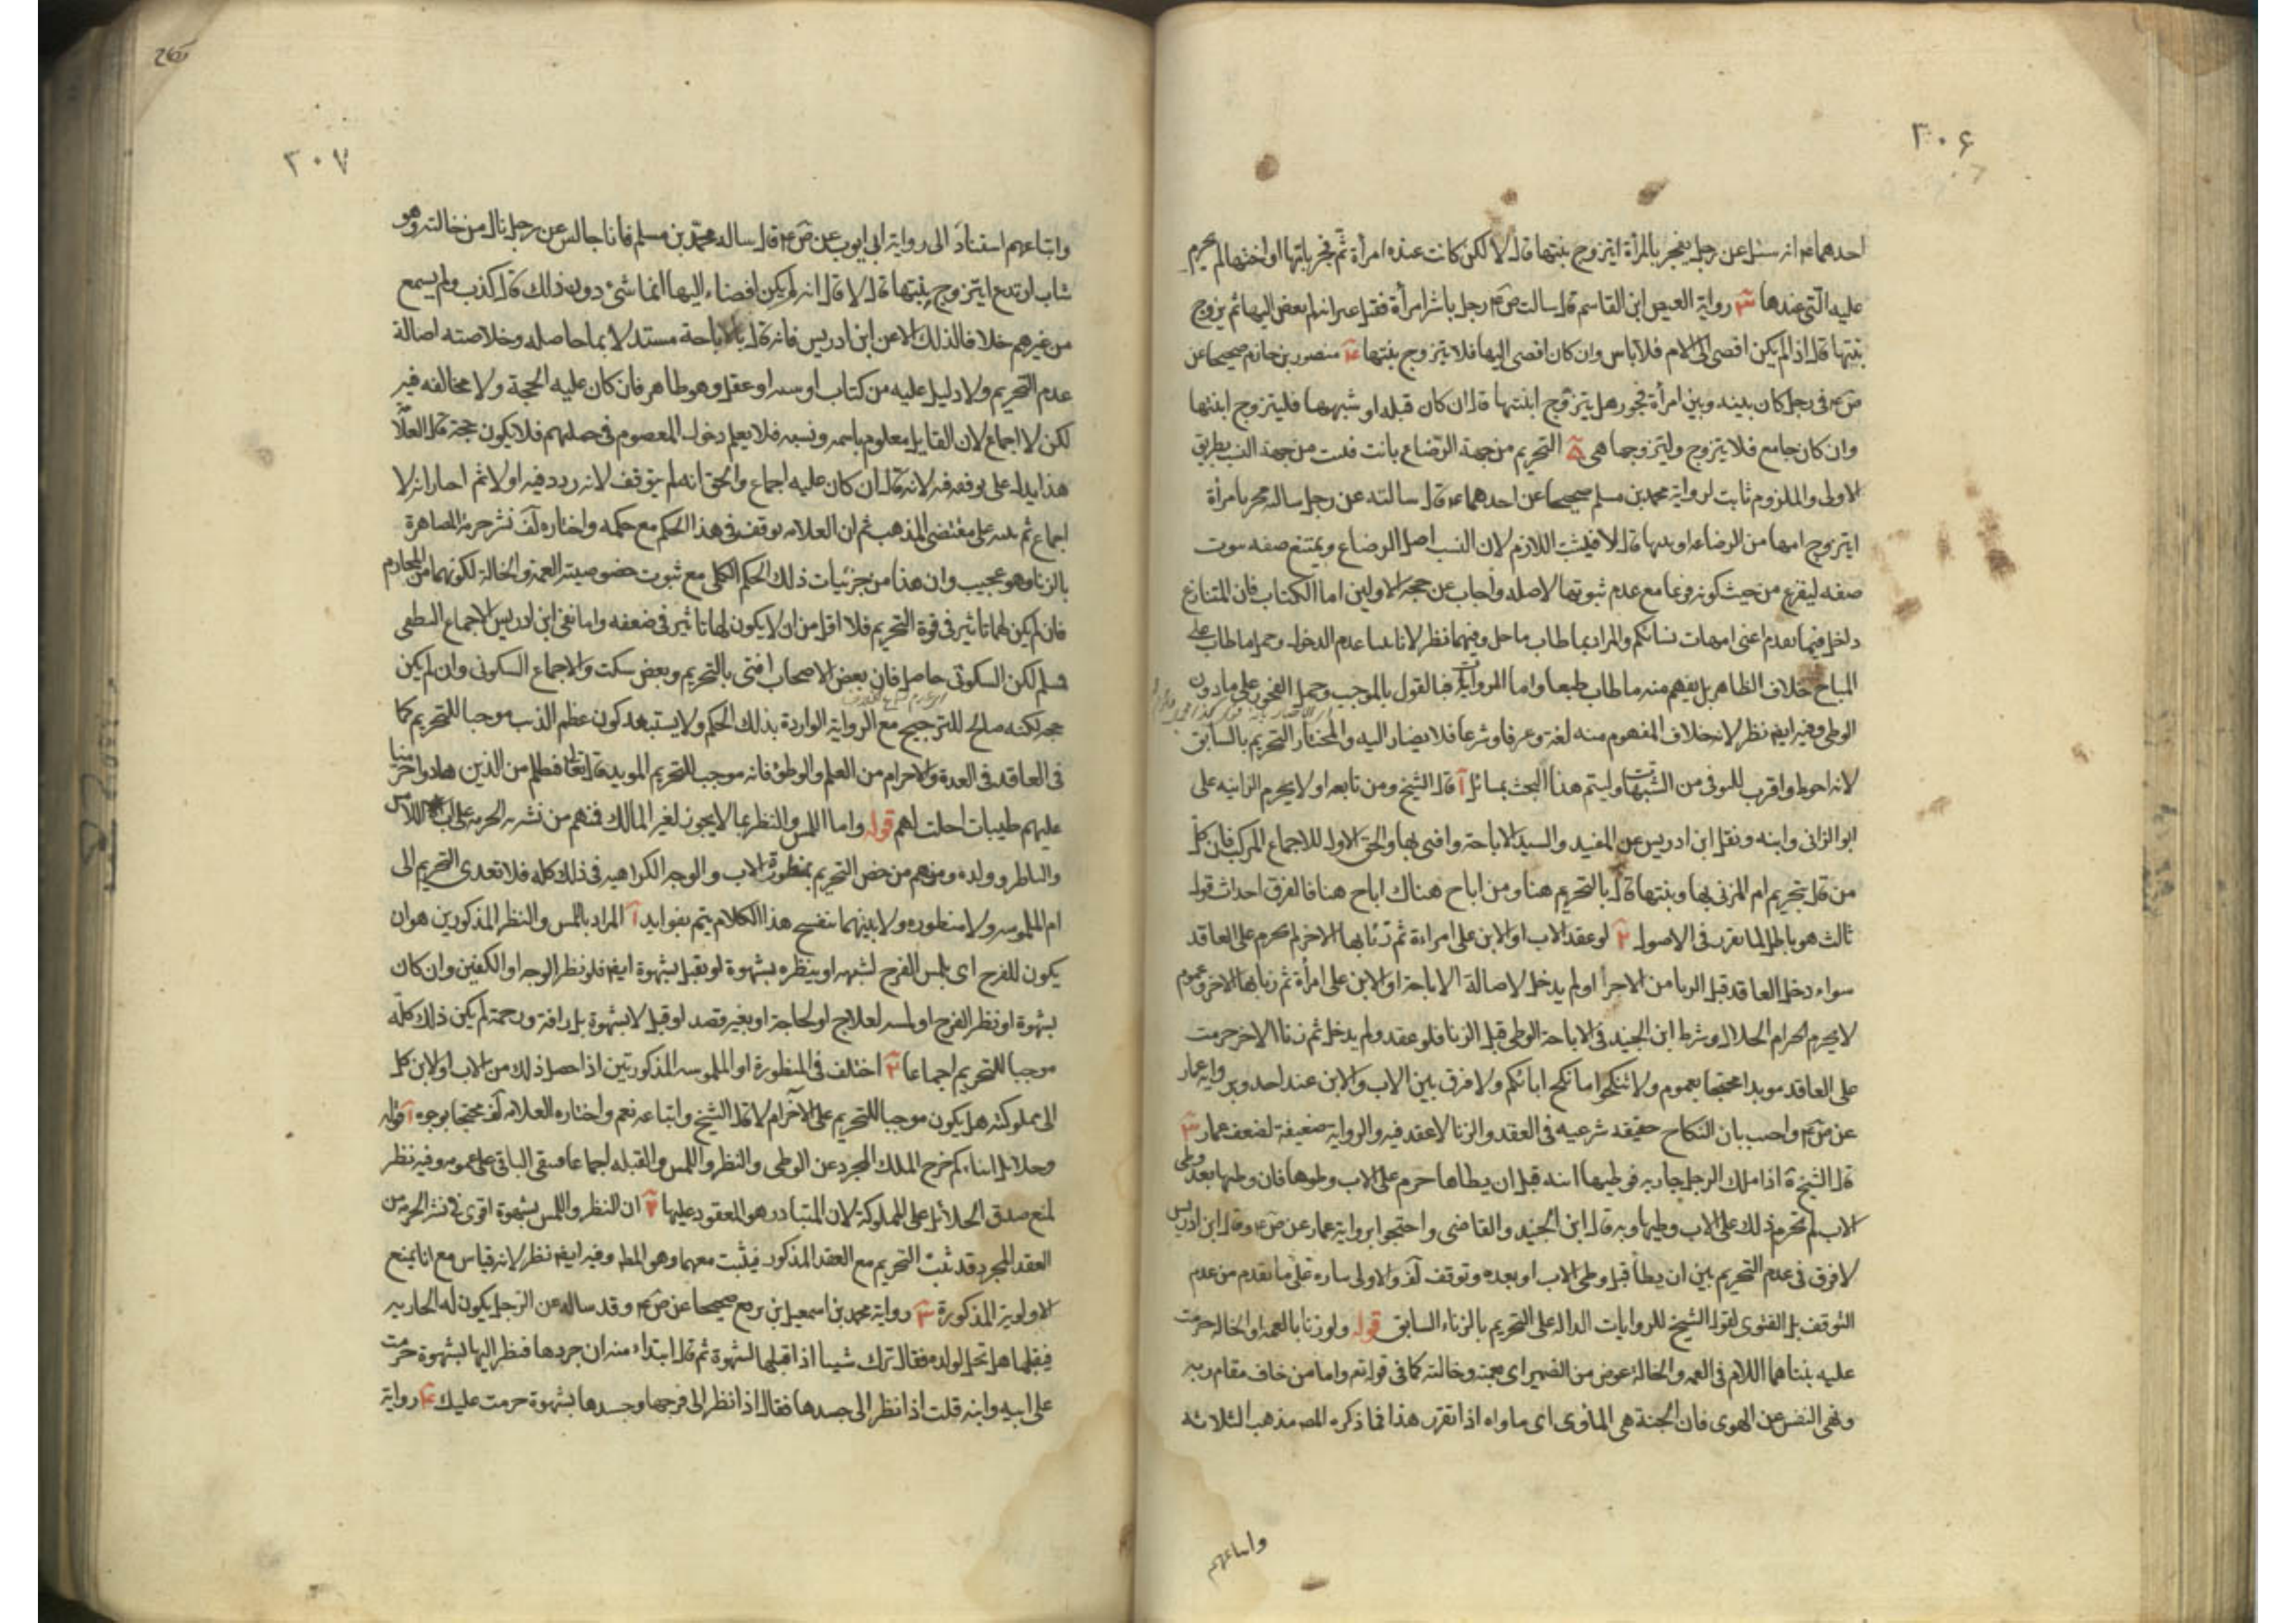 ٣٠۶
احدهما ع انه سئل عن رجل يفجر بالمرأة ايتزوج بنتها قال لا لكن كانت عنده امرأة ثم فجر بامها او اختها لم يحرم
عليه التى عندها ٣ رواية العيص ابن القاسم قال سالت ص ع رجل باشر امرأة فقبل غير انه لم يفض اليها ثم يزوج
بنتها قال اذا لم يكن افضى الى الام فلا باس وان كان افضى اليها فلا يتزوج بنتها ۴ منصور بن حازم صحيحا عن
ص ع فى رجل كان بينه وبين امرأة فجور هل يتزوج ابنتها قال ان كان قبلة او شبهها فليتزوج ابنتها
وان كان جامع فلا يتزوج وليتزوجها هى ۵ التحريم من جهة الرضاع بانت فثبت من جهة النسب بطريق
الاولى والملزوم ثابت لرواية محمد بن مسلم صحيحا عن احدهما ع قال سالته عن رجل ساله فجر بامرأة
ايتزوج امها من الرضاعه او بنتها قال لا فيثبت اللازم لان النسب اصل الرضاع ويمتنع صفه ثبوت
صفه ليفرع من حيث كونه فرعا مع عدم ثبوتها لاصله واجاب عن حجة الاولين اما الكتاب فان المتنازع
داخل فيما تقدم اعنى امهات نسائكم والمراد بما طاب ما حل وفيهما نظر لانا بينا عدم الدخول وحمل ما طاب على
المباح خلاف الظاهر بل يفهم منه ما طاب طبعا واما الروايات فبا القول بالموجب وحمل الفجور على ما دون
الوطى وفيه ايضا نظر لانه خلاف المفهوم منه لغة وعرفا وشرعا فلا يصار اليه والمختار التحريم بالسابق
لانه احوط واقرب للتوقى من الشبهات وليتم هذا البحث بمسائل آ قال الشيخ ومن تابعه او لا يحرم الزانيه على
ابو الزانى وابنه ونقل ابن ادريس عن المفيد والسيد الاباحة وافتى بها والحق الاول للاجماع المركب فان كل
من قال بتحريم ام المزنى بها وبنتها قال بالتحريم هنا ومن اباح هناك اباح هنا فالفرق احداث قول
ثالث هو باطل لما تقرر فى الاصول ٢ لو عقد الاب او الابن على امراءة ثم زنا بها الاخر لم تحرم على العاقد
سواء دخل العاقد قبل الزنا من الاخر أو لم يدخل لاصالة الاباحة او الابن على امرأة ثم زنا بها الاخر وعموم
لا يحرم الحرام الحلال وشرط ابن الجنيد فى الاباحة الوطى قبل الزنا فلو عقد ولم يدخل ثم زنا الاخر حرمت
على العاقد موبدا محتجا بعموم ولا تنكحوا ما نكح ابائكم ولا فرق بين الاب والابن عند احد وبرواية عمار
عن ص ع واجيب بان النكاح حقيقه شرعيه فى العقد والزنا لا عقد فيه والرواية ضعيفة لضعف عمار ٣
قال الشيخ ره اذا ملك الرجل جاريه فوطيها ابنه قبل ان يطاها حرم على الاب وطوها فان وطيها بعد وطى
الاب لم تحرم ذلك على الاب وطيها وبه قال ابن الجنيد والقاضى واحتجوا برواية عمار عن ص ع وقال ابن ادريس
لا فرق فى عدم التحريم بين ان يطأ قبل وطى الاب او بعده وتوقف لف والاولى بناء على ما تقدم من عدم
التوقف بل الفتوى لقول الشيخ للروايات الداله على التحريم بالزناء السابق قوله ولو زنا بالعمة او الخاله حرمت
عليه بنتاهما اللام فى العمه والخالة عوض من الضمير اى عمته وخالته كما فى قوله تع واما من خاف مقام ربه
ونهى النفس عن الهوى فان الجنة هى المأوى اى ماواه اذا تقرر هذا فما ذكره المصـ مذهب الثلاثه
واتباعهم
٣٠٧
واتباعهم استنادا الى رواية ابى ايوب عن ص ع قال ساله محمد بن مسلم فانا جالس عن رجل نال من خالته وهو
شاب ارتدع ايتزوج بنتها قال لا قال انه لم يكن افضاء اليها انما شىء دون ذلك قال كذب ولم يسمع
من غيرهم خلافا لذلك الا عن ابن ادريس فانه قال بالاباحة مستدلا بما حاصله وخلاصته اصالة
عدم التحريم ولا دليل عليه من كتاب او سنه او عقل وهو ظاهر فان كان عليه الحجة ولا مخالفه فيه
لكن لا اجماع لان القايل معلوم باسمه ونسبه فلا يعلم دخول المعصوم فى جملتهم فلا يكون حجة قال العلامه
هذا يدل على توقفه فيه لانه قال ان كان عليه اجماع والحق انه لم يتوقف لانه ردد فيه اولا ثم اختار انه لا
اجماع ثم بنى على مقتضى المذهب ثم ان العلامه توقف فى هذا الحكم مع حكمه واختاره لف نشر حرمة المصاهرة
بالزنا وهو عجيب وان هذا من جزئيات ذلك الحكم الكلى مع ثبوت خصوصية العمة والخالة لكونهما من المحارم
فان لم يكن لها تاثير فى قوة التحريم فلا اقل من ان لا يكون لها تاثير فى ضعفه واما نفى ابن ادريس الاجماع القطعى
فسلم لكن السكوتى حاصل فان بعض الاصحاب افتى بالتحريم وبعض سكت والاجماع السكوتى وان لم يكن
حجه لكنه صالح للترجيح مع الرواية الواردة بذلك الحكم ولا يستبعد كون عظم الذنب موجبا للتحريم كما
فى العاقد فى العدة والاحرام من العلم والوطئ فانه موجب للتحريم الموبد قال تعالى فبظلم من الذين هادوا حرمنا
عليهم طيبات احلت لهم قوله واما اللمس والنظر بما لا يجوز لغير المالك فمنهم من نشر به الحرمه على اب اللامس
والناظر وولده ومنهم من خص التحريم بمنظورة الاب والوجه الكراهيه فى ذلك كله فلا تعدى التحريم الى
ام الملموسه ولا المنظوره ولا بنتيهما تنقيح هذا الكلام يتم بفوايد آ المراد باللمس والنظر المذكورين هو ان
يكون للفرج اى يلمس الفرج لشهوه او ينظره بشهوة او يقبل بشهوة ايضا فلو نظر الوجه او الكفين وان كان
بشهوة او نظر الفرج او لمسه لعلاج او لحاجة او بغير قصد او قبل لا بشهوة بل رافة ورحمة لم يكن ذلك كله
موجبا للتحريم اجماعا ٢ اختلف فى المنظورة او الملموسه المذكورتين اذا حصل ذلك من الاب او الابن كل
الى مملوكته هل يكون موجبا للتحريم على الآخر ام لا قال الشيخ واتباعه نعم واختاره العلامه لف محتجا بوجوه آ قوله
وحلايل ابناءكم خرج الملك المجرد عن الوطى والنظر واللمس والقبله اجماعا فبقى الباقى على عمومه وفيه نظر
لمنع صدق الحلائل على المملوكة لان المتبادر هو المعقود عليها ٢ ان النظر واللمس بشهوة اقوى فى نشر الحرمة من
العقد المجرد قد ثبت التحريم مع العقد المذكور فيثبت معهما وهو المط وفيه ايضا نظر لانه قياس مع انا نمنع
الاولوية المذكورة ٣ رواية محمد بن اسمعيل ابن بزيع صحيحا عن ص ع وقد ساله عن الرجل يكون له الجاريه
فيقبلها هل تحل لولده فقال ترك شيئا اذا قبلها لشهوة ثم قال ابتداء منه ان جردها فنظر اليها بشهوة حرمت
على ابيه وابنه قلت اذا نظر الى جسدها فقال اذا نظر الى فرجها وجسدها بشهوة حرمت عليك ۴ رواية